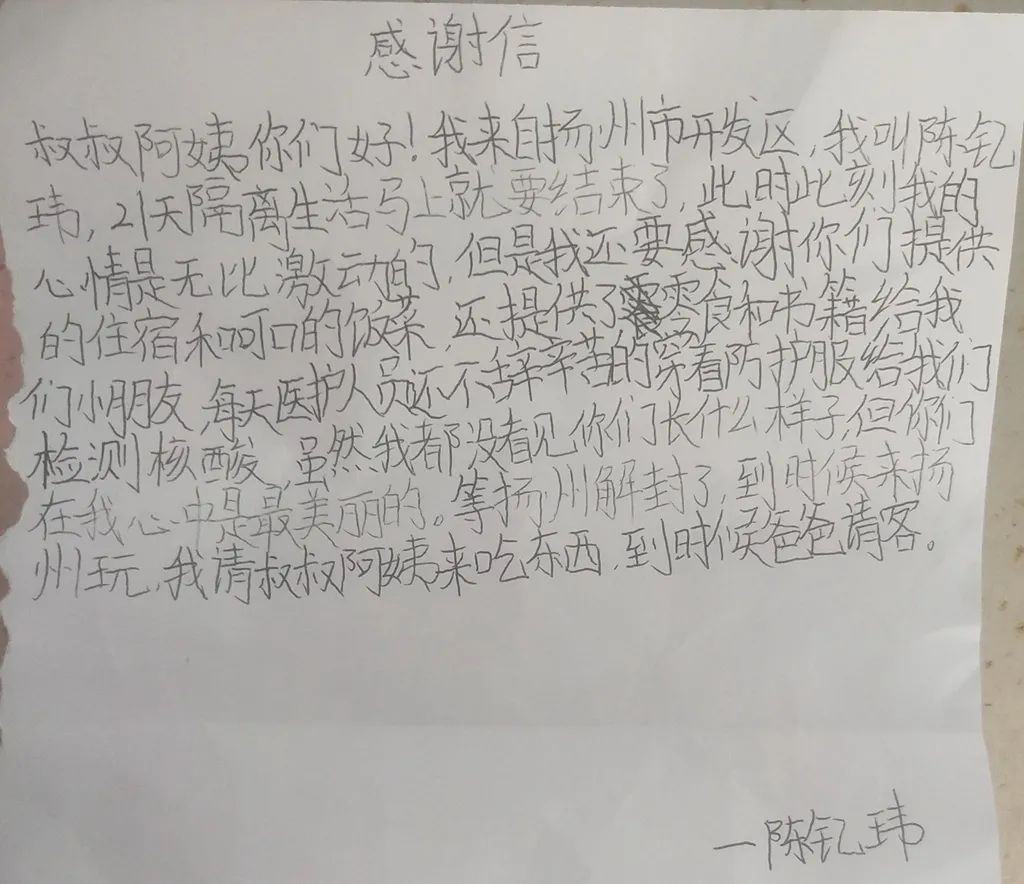 感谢信
叔叔阿姨,你们好!我来自扬州市开发区,我叫陈钇
玮,21天隔离生活马上就要结束了,此时此刻我的
心情是无比激动的,但是我还要感谢你们提供
的住宿和可口的饭菜,还提供了零食和书籍给我
们小朋友,每天医护人员还不辞辛苦的穿着防护服给我们
检测核酸,虽然我都没看见你们长什么样子,但你们
在我心中是最美丽的。等扬州解封了,到时候来扬
州玩,我请叔叔阿姨来吃东西,到时候爸爸请客。
—陈钇玮